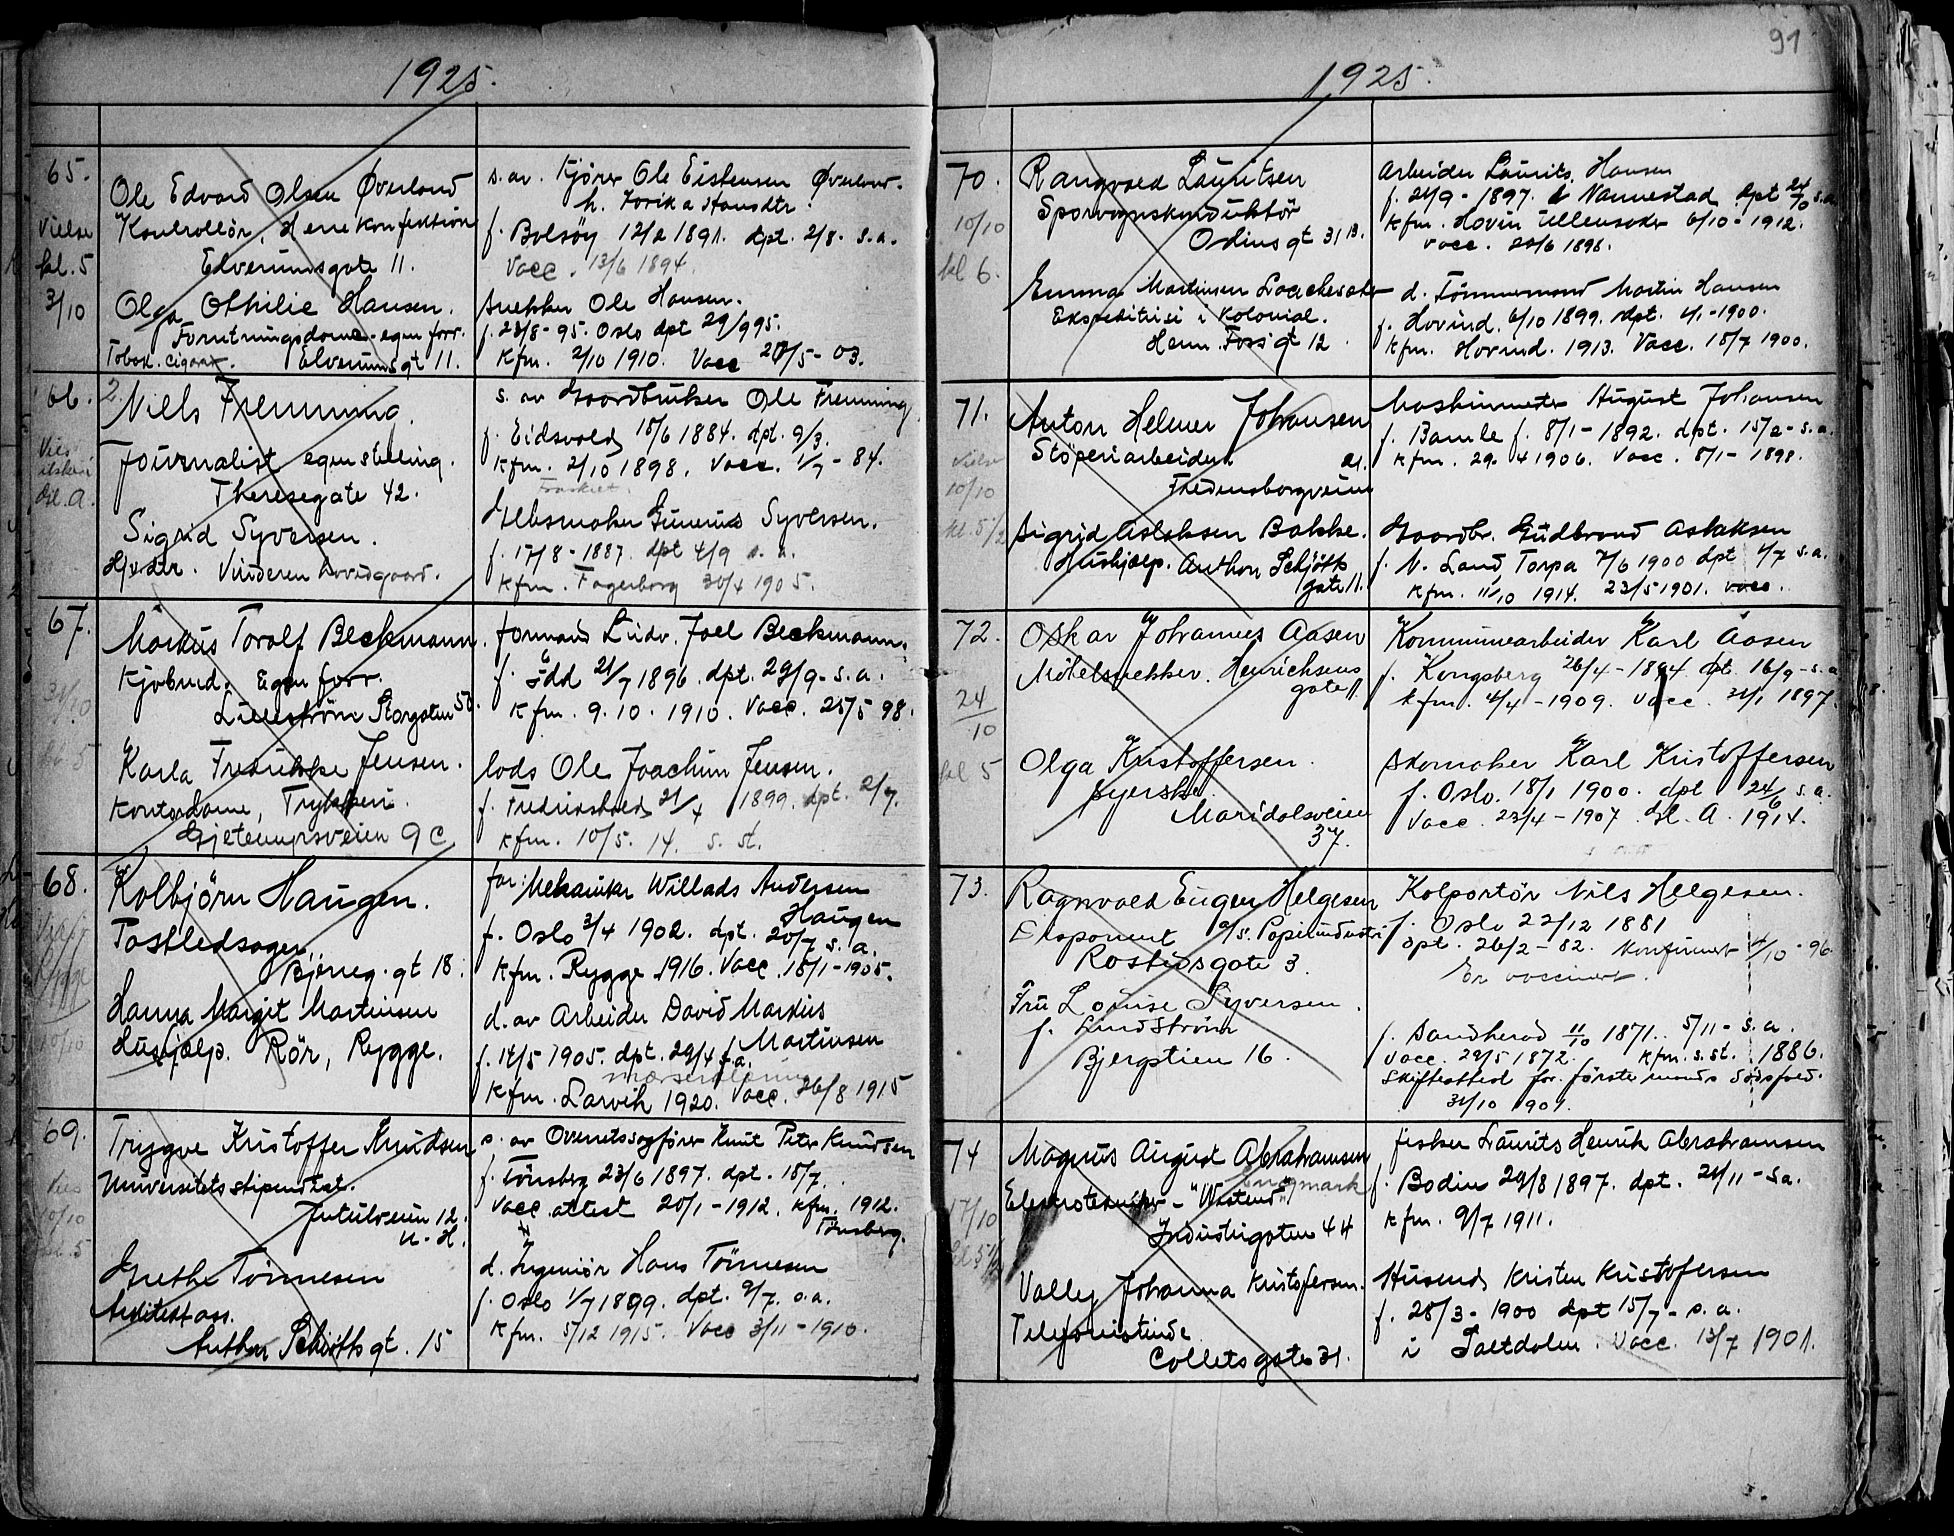 91
1925.
65.
Vielse
kl. 5
3/10
Ole Edvard Olsen Øverland
Kontrollör, Herrekonfektion
Elverumsgate 11.
Olga Othilie Hansen.
Forretningsdame egen forr.
Tobak. Cigarer. Elverumsgt 11.
s. av. Kjører Ole Eistensen Øverland.
h.
f. Bolsöy 12/2 1891. dpt. 2/8. s.a.
Vacc. 13/6 1894.
Snekker Ole Hansen.
f. 23/8-95. Oslo dpt 29/9 95.
Kfm. 2/10 1910. Vacc 28/5-03.
66.
2.
Niels Fremming.
Journalist egen stilling.
Theresegate 42.
Sigrid Syversen.
Hj.v.dtr. Vinderen hovedgaard.
s. av Gaardbruker Ole Fremming
f. Eidsvold 18/6 1884. dpt. 9/3.
Kfm. 2/10 1898. Vacc. 1/7-84.
Fraskilt.
Gunerius Syversen.
f. 17/8-1887. dpt 4/9 s.a.
Kfm. Fagerborg 30/4 1905.
67.
31/10
kl. 5
Markus Toralf Beckmann.
Kjøbmd. Egen forr.
Lilleström Storgaten 50.
Karla Fredrikke Jensen.
Kontordame, Trykkeri.
Gjetemyrsveien 9c
formand Ludv. Joel Beckmann.
f. Ødd 21/7 1896. dpt. 29/9-s.a.
Kfm. 9.10.1910. Vacc. 25/5 98.
lods Ole Joachim Jensen.
f. Fredrikstad 21/4 1899. dpt. 2/7.
Kfm. 10/5. 14. s. st.
68.
Rygge
10/10
Kolbjörn Haugen.
Postledsager.
Bjerreg. gt 18.
Hanna Margit Martinsen
Hushjælp. Rör, Rygge.
for: Mekaniker Willads Andersen
Haugen
f. Oslo 3/4 1902. dpt. 20/7 s.a.
Kfm. Rygge 1916. Vacc. 18/1-1905.
d. av Arbeider David Markus
Martinsen
f. 14/5 1905. dpt. 29/4 f.a.
Kfm. Larvik 1920. Vacc. 26/8 1915
69.
10/10
kl. 5
Trygve Kristoffer Knudsen
Universitetsstipendiat.
Jutulveien 12.
U.H.
Grethe Tönnesen
Arkitekt ass.
Anthon Schiøttsgt. 15
s. av Overretssagfører Knut Peter Knudsen
f. Tönsberg 23/6 1897. dpt. 18/7.
Vacc. attest 20/1-1912. Kfm. 1912.
Tönsberg.
d. Ingeniör Hans Tönnesen
f. Oslo 1/7 1899. dpt. 9/7. s.a.
Kfm. 5/12 1915. Vacc 3/11-1910.
1925.
70.
10/10
kl 6.
Rangvald Lauritsen
Sporvognskonduktör
Odins gt 31 B.
Emma Martinsen
Ekspeditrise i Kolonial.
Henr. Foss gt 12.
Arbeider Laurits Hansen
f. 21/9-1897. i Nannestad dpt s.a.
Kfm. Hovin Ullensaker 6/10-1912.
Vacc. 20/6 1898.
d. Tömmermand Martin Hansen
f. Hovind. 6/10 1899. dpt. 1/1-1900.
Kfm. Hovind. 1913. Vacc. 18/7 1900.
71.
Vielse
10/10
kl. 5 1/2
Anton Helmer Johansen
Stöperiarbeider
21.
Fredensborgveien
Sigrid Aslaksen Bakke.
Hushjælp. Anthon Schjötts
gate 11.
Maskinmester August Johansen
f. Bamle f. 8/1-1892. dpt. 15/2-s.a.
Kfm. 29. 4 1906. Vacc. 8/1-1898.
Gaardbr. Gudbrand Aslaksen
f. N. Land Torpa 7/6 1900 dpt 1/7 s.a.
Kfm. 11/10 1914. 23/5 1901. vacc.
72.
24/10
kl 5
Oskar Johannes Aasen
Möbelsnekker. Henrichsens
gate 11.
Olga Kristoffersen.
syerske.
Maridalsveien
37.
Kommunearbeider Karl Aasen
f. Kongsberg 26/4-1894 dpt. 16/9-s.a.
Kfm. 4/4-1909. Vacc. 21/1 1897.
Skomaker Karl Kristoffersen
f. Oslo. 18/1 1900. dpt 24/6 s.a.
Vacc. 23/4-1907. Gl. A. 1914.
73.
Ragnvald Eugen Helgesen
Disponent A/S. Papirindustri
Rostedsgate 3.
Fru Louise Syversen
f. Lindström
Bjergstien 16.
Kolportör Nils Helgesen.
f. Oslo 22/12 1881
dpt. 26/2-82. Konfirmert 4/10-96
Er vaccinert.
f. Sandherad 11/10 1871. 5/11-s.a.
Vacc. 29/5 1872. Kfm. s. st. 1886.
Skifteattest for förste mands dödsfald.
31/10 1907.
74
17/10
kl 5 1/2
Magnus August Abrahamsen
Engmark
Elektrotekniker-"Westend"
Industrigaten 44
Valley Johanna Kristofersen.
Telefonistinde.
Colletsgate 31.
fisker Laurits Henrik Abrahamsen
f. Bodin 29/8 1897. dpt. 21/11-s.a.
Kfm. 9/7 1911.
Husmd. Kristen Kristofersen
f. 28/3-1900 dpt 15/7-s.a.
i Saltdalen. Vacc. 13/7 1901.